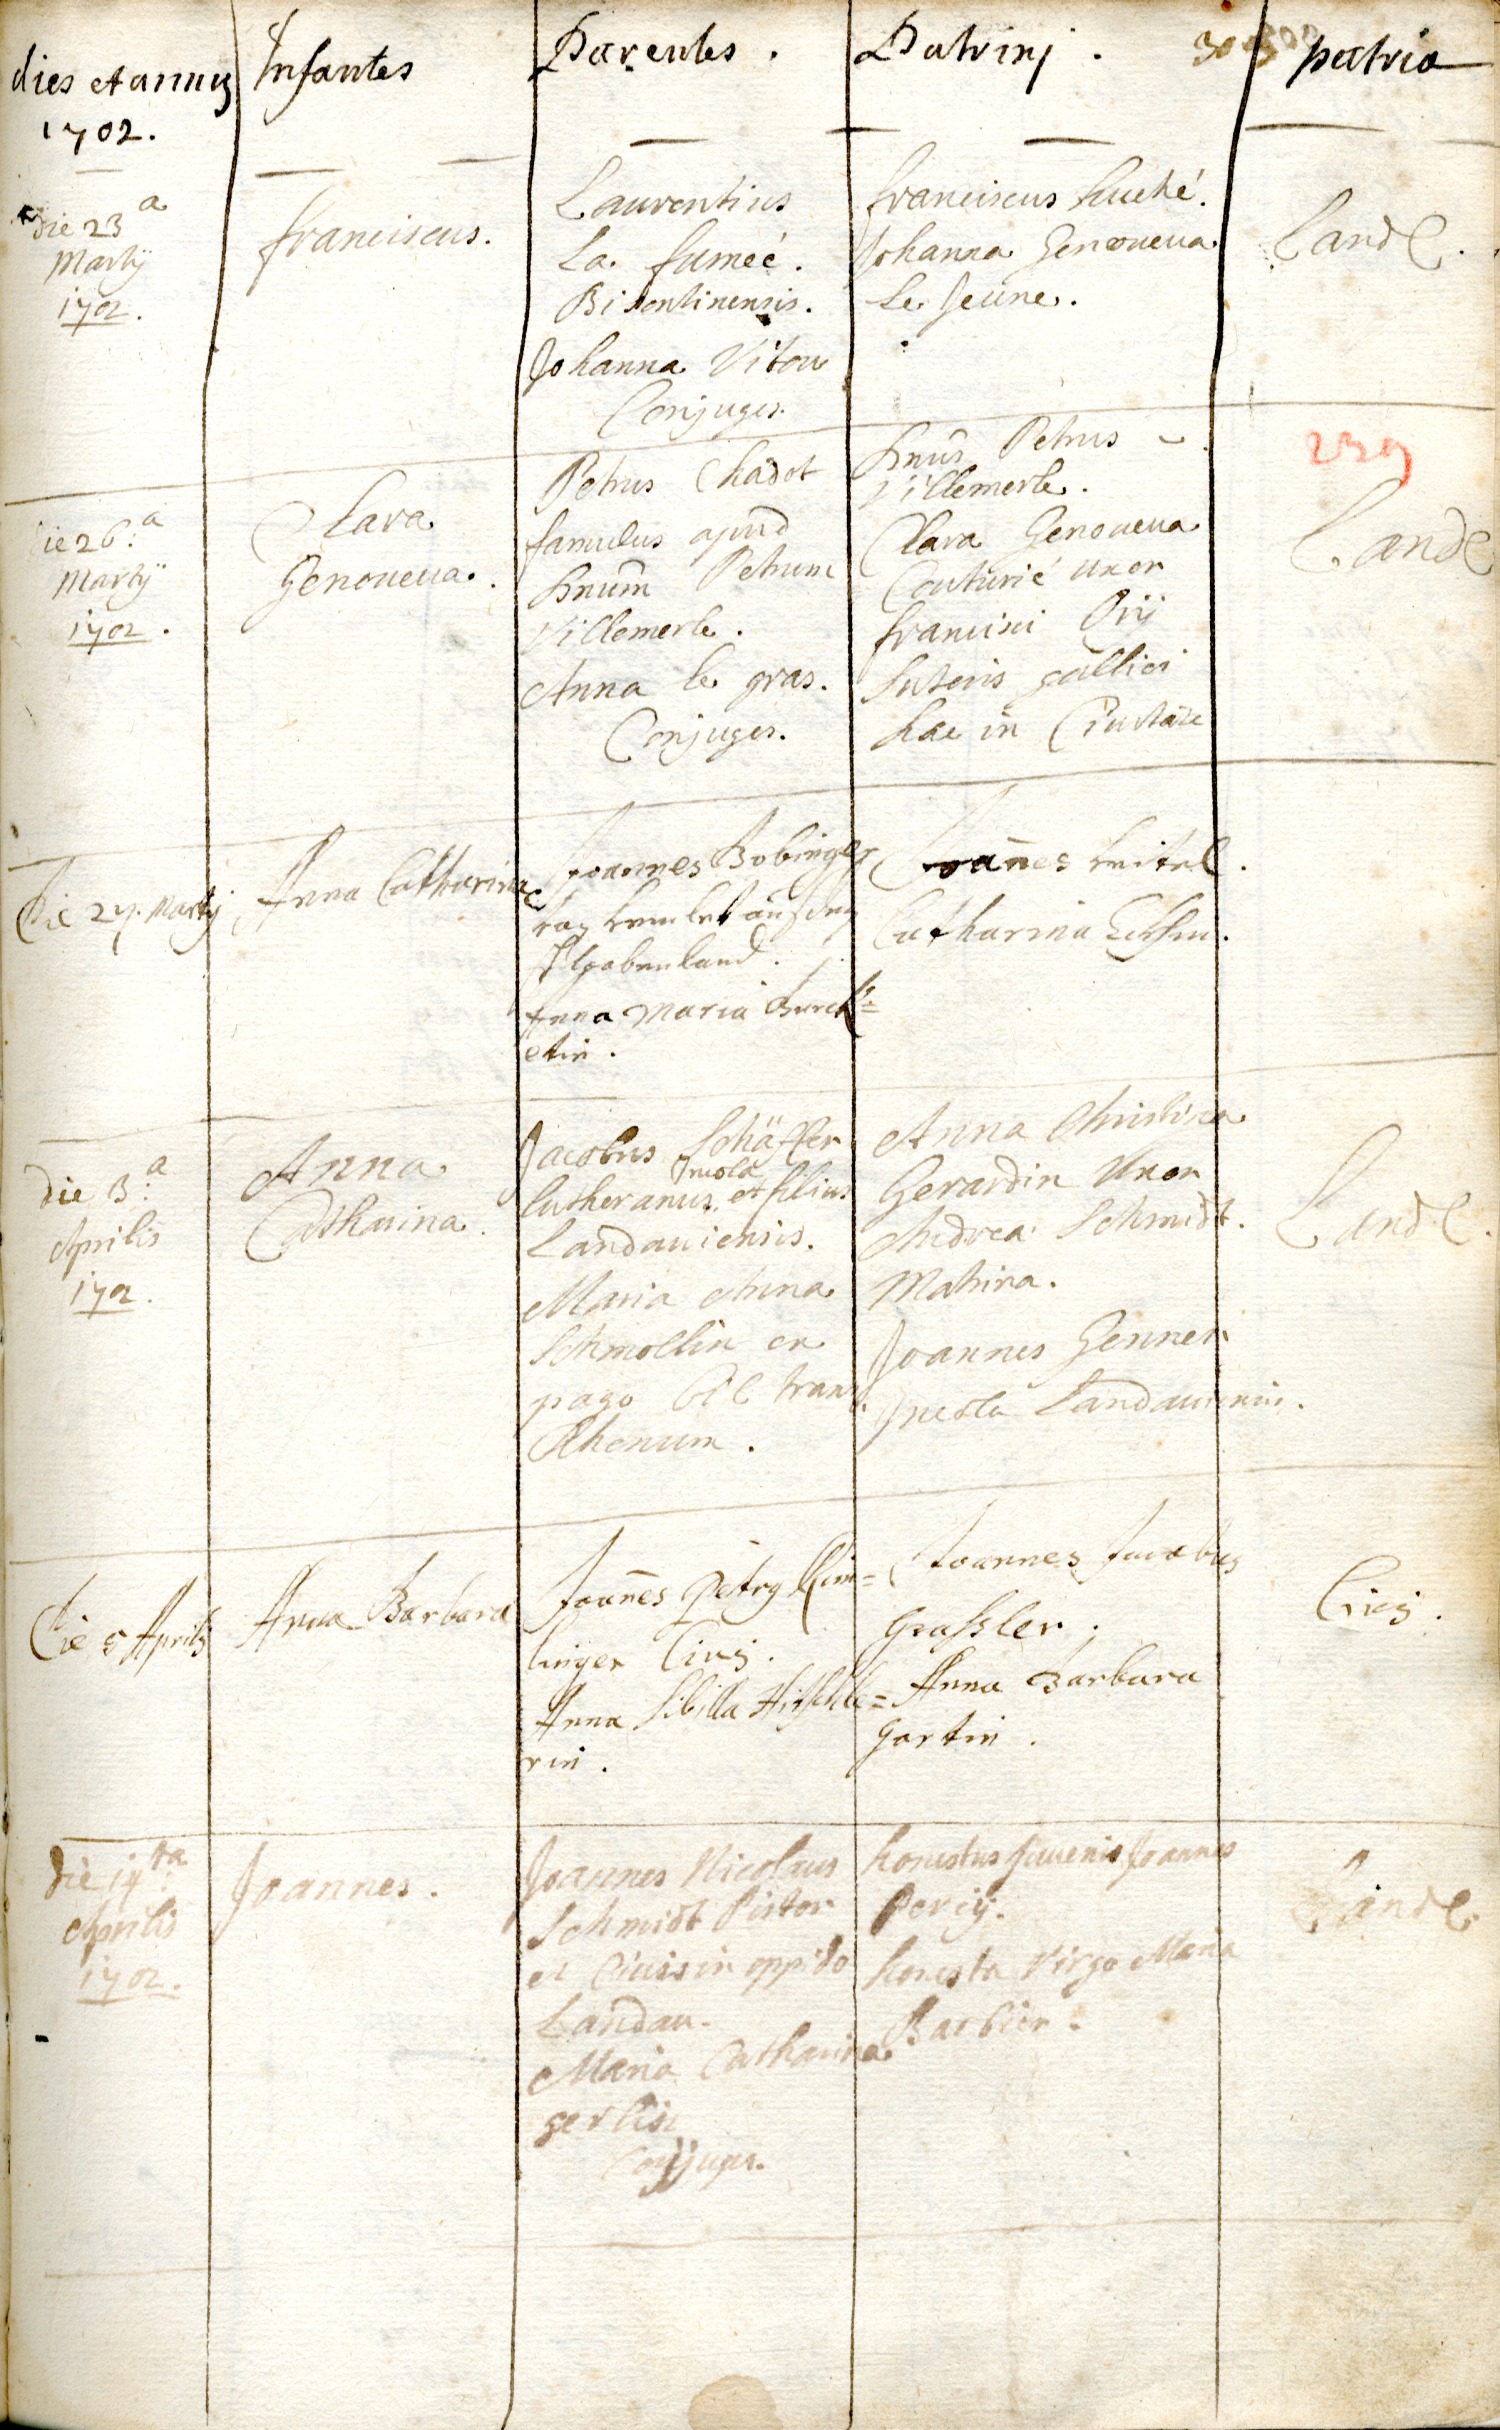 dies et annus
1702.
Infantes
Parentes.
Patrinj.
patria
die 23a
Martij
1702.
franciscus.
Laurentius
La fumeé.
Bisontinensis.
Johanna Viton
Conjuges.
franciscus huché.
Johanna Genoueua
Le Jeune.
Land
239
die 26.a
Martij
1702.
Clara
Genoueua.
Petrus Chadot
famulus apud
Dnum Petrum
Villemerle.
Anna le gras.
Conjuges.
Dnus Petrus
Villemerle.
Clara Genoueua
Couturié uxor
francisci Orij
Sutoris gallici
hac in Ciuitate
Land
Die 27. Martij
Anna Catharina
Joannes Bobinger
Anna Maria Burck=
etin.
Joannes
Catharina
die 3.a
Aprilis
1702.
Anna
Catharina.
Jacobus Schäffer
Incola
lutheranus et filius
Landauiensis.
Maria Anna
Schmollin ex
pago trans
Rhenum.
Anna Christina
Gerardin Uxor
Andreæ Schmidt.
Matrina.
Joannes Genner
Incola Landauiensis.
Land
Die 5 Aprilis
Anna Barbara
Joannes Petry
linger Ciuis.
Anna Sibilla
rin.
Joannes Jacobus
Grassler.
Anna Barbara
Gartin.
Ciuis.
die 17ta
Aprilis
1702.
Joannes.
Joannes Nicolaus
Schmidt Pistor
et Ciuis in oppido
Landau.
Maria Catharina
gerlin
Conjuges.
honestus Juuenis Joannes
Percij.
honesta Virgo Maria
Barbier.
Land